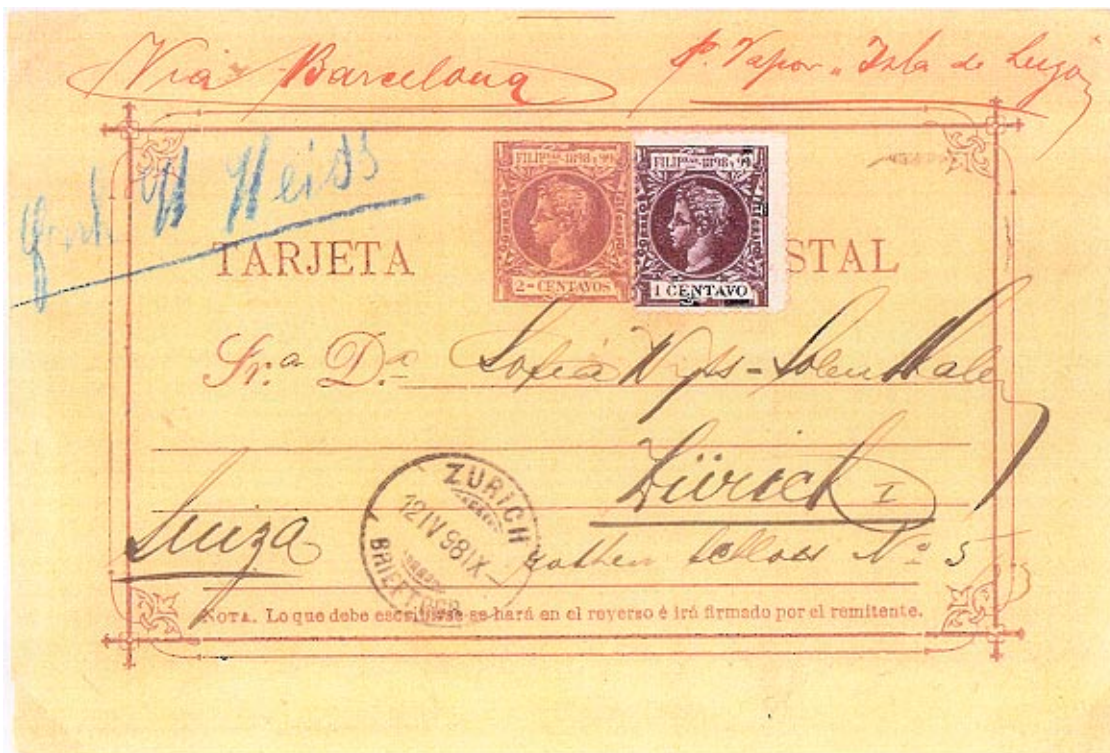 Via Barcelona
p. Vapor "Isla de Luzon
W Weiss
FILIPnas 1898 y 99
2 = CENTAVOS
FILIPnas 1898 y 99
1 CENTAVO
TARJETA STAL
Sr.a D.a Sofia Wyss-
Zürich I
Suiza
ZÜRICH
12 IV 98 IX
BRIEFTRÄG
Schloss No 5
NOTA. Lo que debe escribirse se hará en el reverso é irá firmado por el remitente.